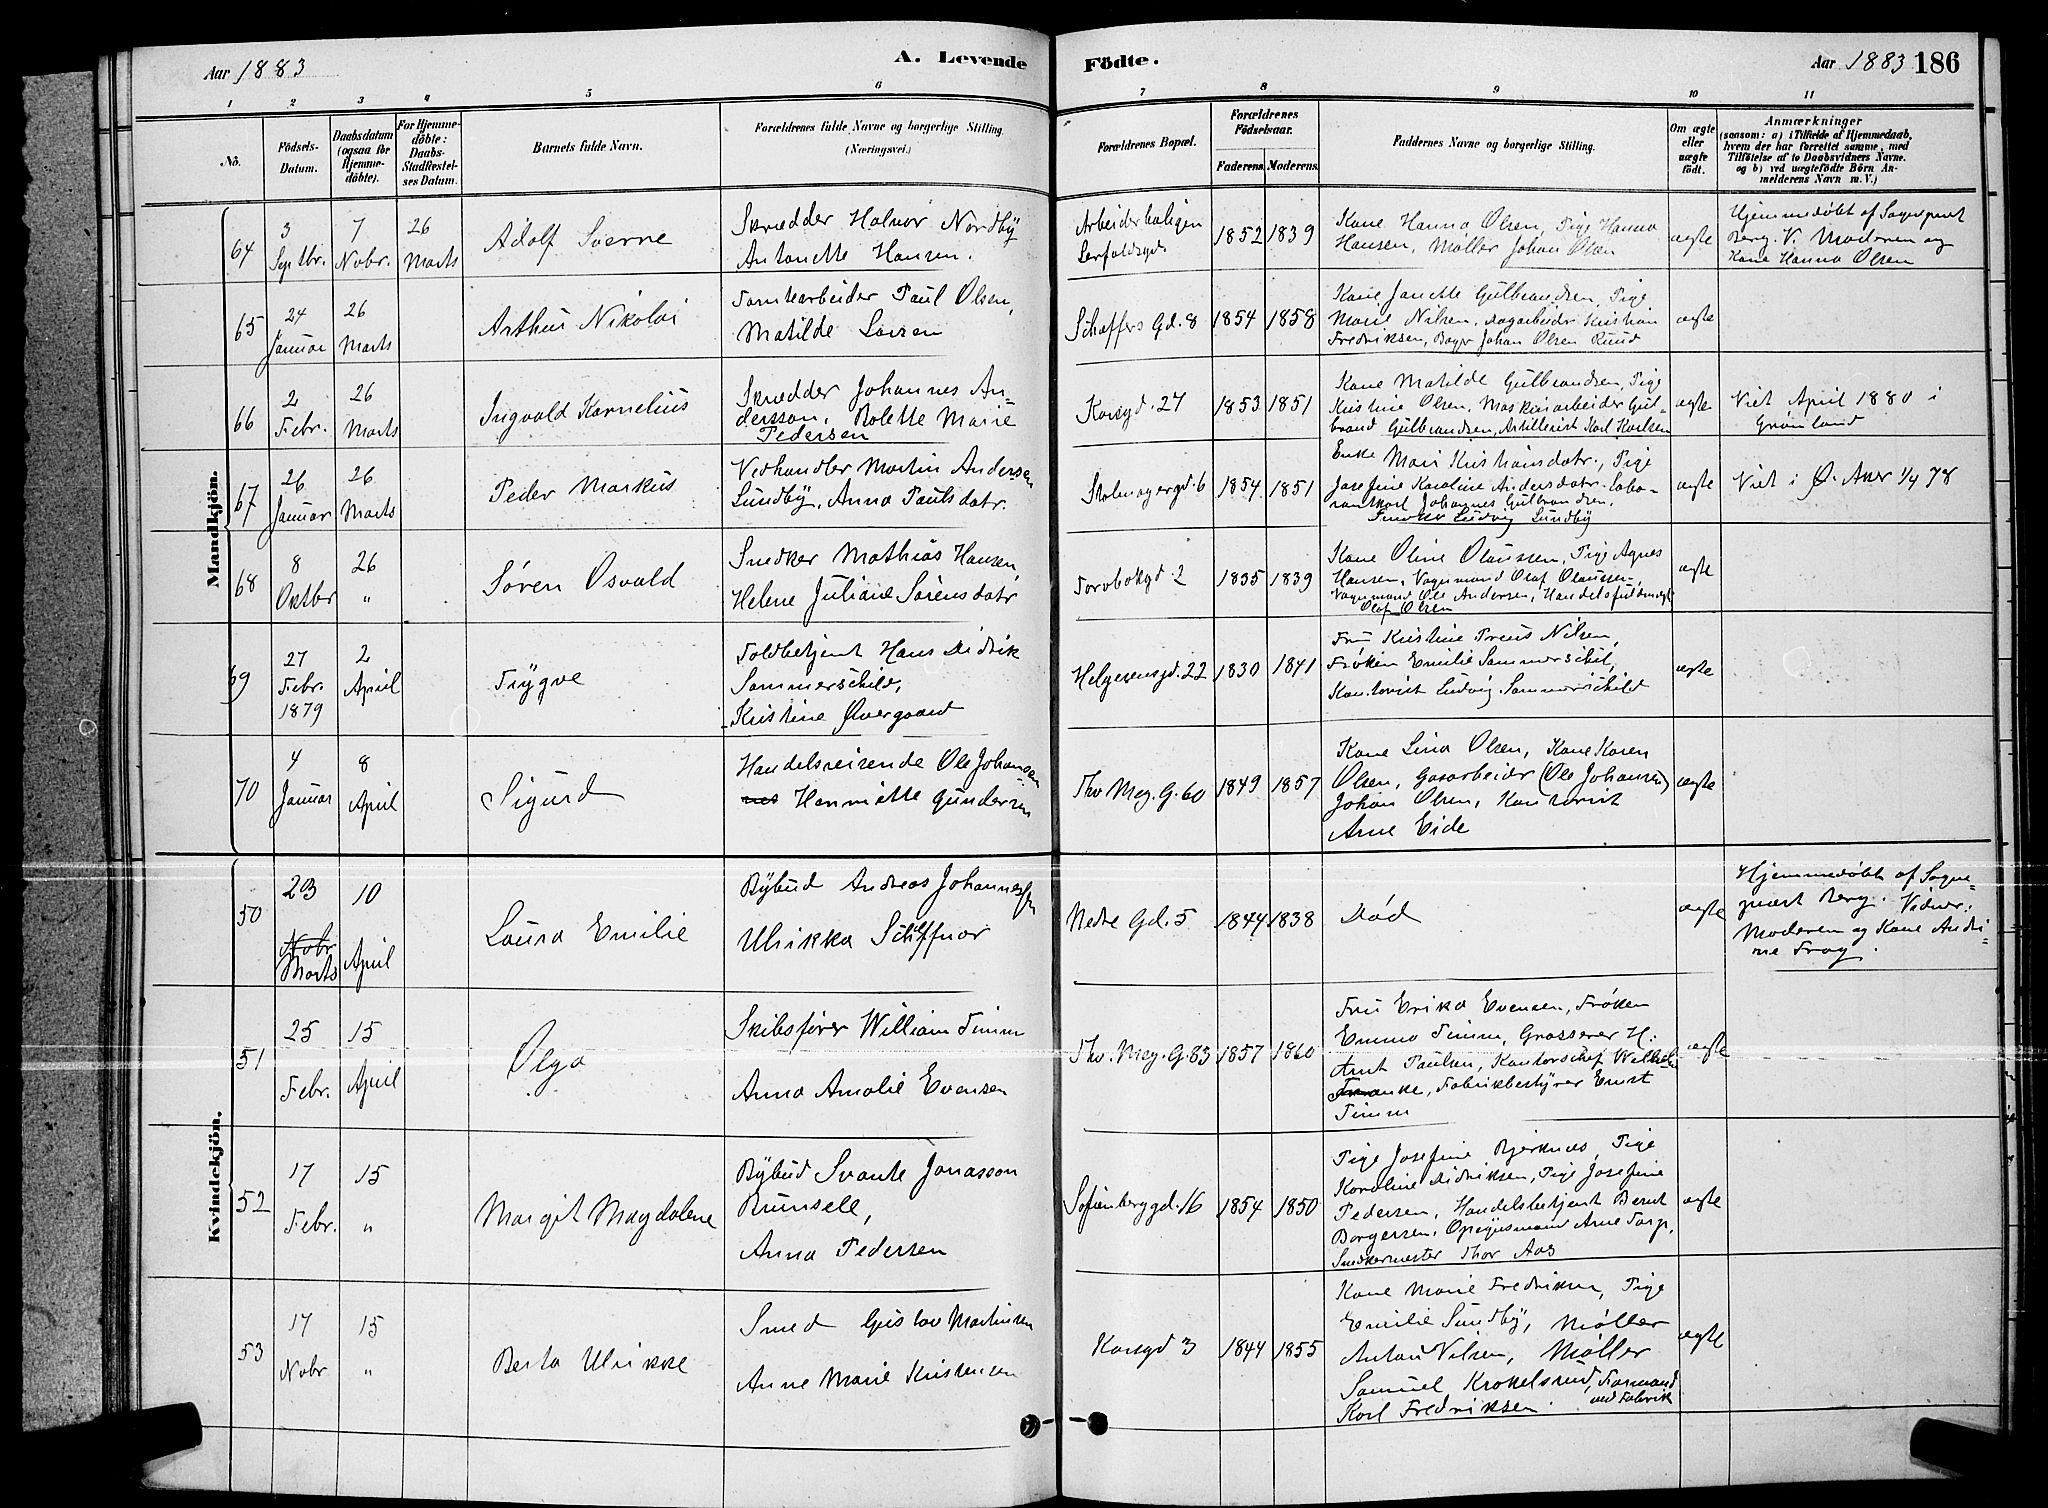 Aar 1883
A. Levende
Födte.
Aar 1883 186
1 2 3 4 5 6 7 8 9 10 11
No.
Födsels-Datum.
Daabsdatum (ogsaa for Hjemmedöbte).
For Hjemmedöbte: Daabs-Stadfæstelses Datum.
Barnets fulde Navn.
Forældrenes fulde Navne og borgerlige Stilling. (Næringsvei.)
Forældrenes Bopæl.
Forældrenes Födselsaar.
Faderens. Moderens.
Faddernes Navne og borgerlige Stilling.
Om ægte eller uægte födt.
Anmærkninger
(saasom: a) i Tilfælde af Hjemmedaab, hvem der har forrettet samme, med Tilföielse af to Daabsvidners Navne, og b) ved uægtefödte Börn Anmelderens Navn m. V.)
Mandkjön.
64 3 Septbr. 7 Nobr. 26 Marts Adolf Sverre
Skrædder Halvor Nordby
Antonette Hansen.
Arbeiderboligen
1852 1839
Kone Hanna Olsen, Pige Hanna
Hansen, Møller Johan Olsen
ægte
Hjemmedøbt af Sognepræst
Berg. V. Moderen og
Kone Hanna Olsen
65 24 Januar 26 Marts Arthur Nikolai
Tomtearbeider Paul Olsen,
Matilde Larsen
Schaffers Gd. 8 1854 1858
Kone Janette Gulbrandsen, Pige
Marie Nilsen, Dagarbeider Kristian
Fredriksen, Bager Johan Olsen Ruud
ægte
66 2 Febr. 26 Marts Ingvald Kornelius
Skrædder Johannes An-
dersson, Bolette Marie
Pedersen
Korsgd. 27 1853 1851
Kone Matilde Gulbrandsen, Pige
Kristine Olsen, Maskinarbeider Gul-
brand Gulbrandsen, Artillerist Karl Karlsen
ægte
Viet April 1880 i
Grønland
67 26 Januar 26 Marts Peder Markus
Vedhandler Martin Andersen
Lundby, Anna Paulsdatr.
Stolmagergd. 6 1854 1851
Enke Mari Kristiansdatr., Pige
Josefine Karoline Andersdatr. Labo-
rantkarl Johannes Gulbrandsen,
Snedker Ludvig Lundby
ægte
Viet i Ø. Aker 1/4 78
68 8 Oktbr 26 " Søren Osvald
Snedker Mathias Hansen,
Helene Juliane Sørensdatr
Torvbakgd. 2 1835 1839
Kone Oline Olaussen, Pige Agnes
Hansen, Vognmand Olaf Olaussen,
Vognmand Ole Andersen, Handelsfuldmægt.
Olaf Olsen
ægte
69 27 Febr. 1879 2 April Trygve
Toldbetjent Hans Didrik
Sommerschild,
Kristine Overgaard
Helgesensgd. 22 1830 1841
Fru Kristine Preus Nilsen,
Frøken Emilie Sommerschild,
Kontorist Ludvig Sommerschild
ægte
70 4 Januar 8 April Sigurd
Handelsreisende Ole Johansen
Henriette Gundersen
Thv. Mey. G. 60 1849 1857
Kone Lina Olsen, Kone Karen
Olsen, Gasarbeider (Ole Johansen)
Johan Olsen, Kontorist
Arne Eide
ægte
Kvindekjön.
50 23 Nobr Marts 10 April Laura Emilie
Bybud Andreas Johannessen
Ulrikka Schiffnor
Nedre Gd. 5 1844 1838
Død
ægte
Hjemmedøbt af Sogne-
præst Berg. Vidner:
Moderen og Kone Andri-
ne Frog.
51 25 Febr. 15 April Olga
Skibsfører William Timm
Anna Amalie Evensen
Thv. Mey. G. 83 1857 1860
Fru Erika Evensen, Frøken
Emma Timm, Grosserer H.
Arnt Paulsen, Kontorchef Wilhelm
Franke, Fabrikbestyrer Ernst
Timm
ægte
52 17 Febr. 15 " Margit Magdalene
Bybud Svante Jonasson
Brunsele,
Anna Pedersen
Sofienberggd. 16 1854 1850
Pige Josefine Bjerknes, Pige
Karoline Didriksen, Pige Josefine
Pedersen, Handelsbetjent Bernt
Borgersen, Opsynsmand Arne Torp,
Snedkermester Thor Aas
ægte
53 17 Nobr 15 " Berta Ulrikke
Smed Gustav Martinsen
Anne Marie Kristensen
Korsgd 3 1844 1855
Kone Marie Fredriksen, Pige
Emilie Sundby, Møller
Anton Nilsen, Møller
Samuel Krokelsrud, Formand
ved Fabrik
Karl Fredriksen.
ægte